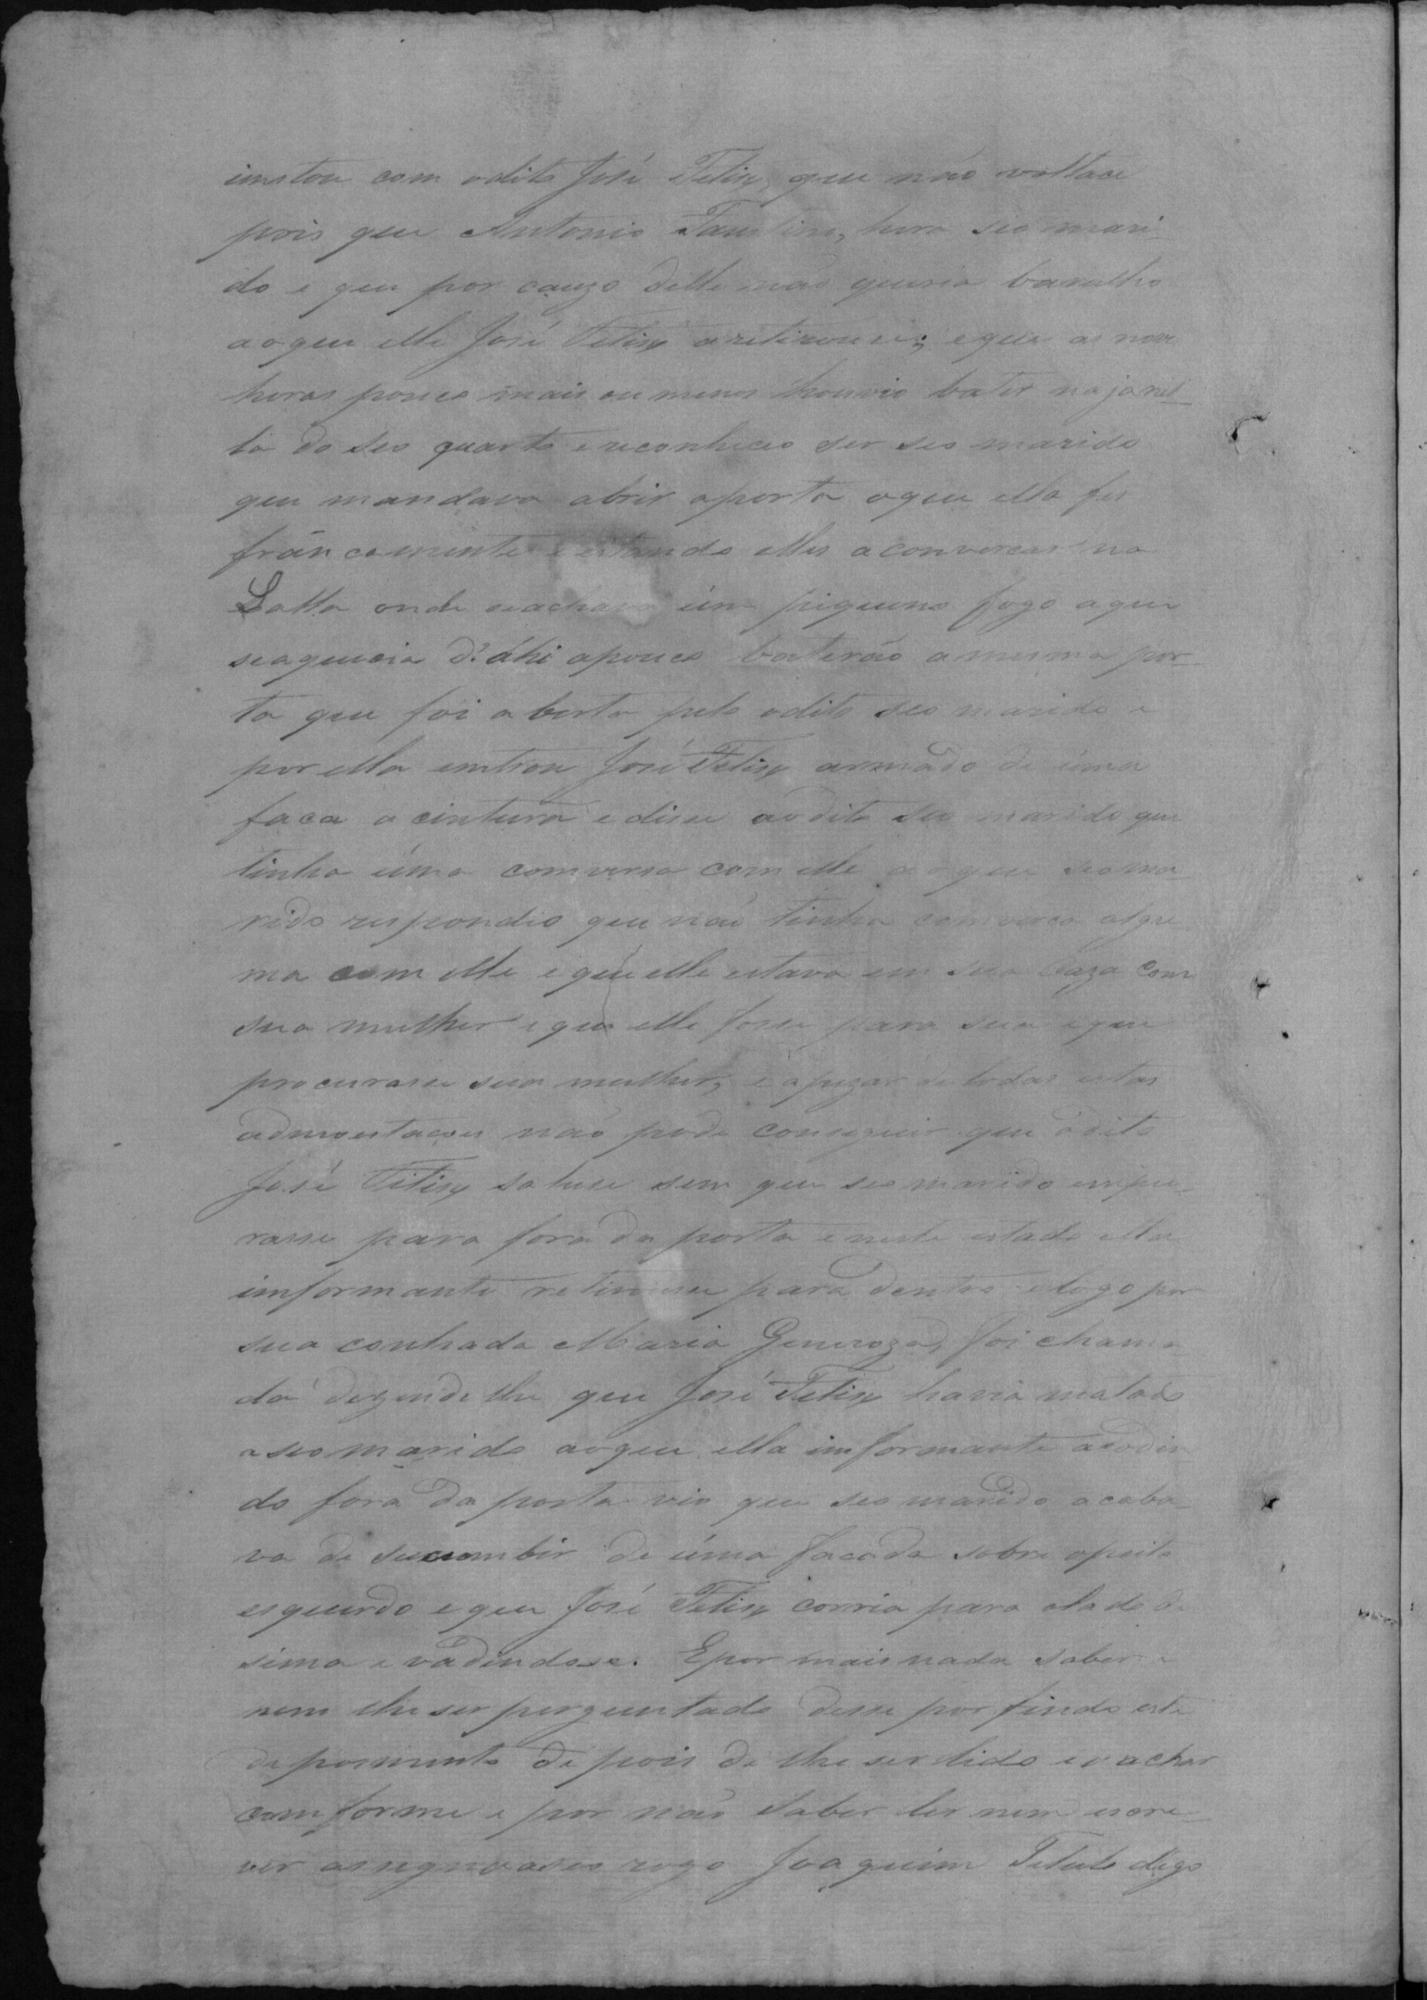 imstou com odito José Felix, que não voltace
pois que Antonio Faustino, hera seo mari-
do e que por cauza delle não queria barulho
aoque elle José Felix aretirouse; eque as nove
horas pouco mais ou menos houvio bater najanel-
la do seo quarto ereconheceo ser seo marido
que mandava abrir aporta oque ella fes
francamente eestando elles aconvercar na
Salla onde seachava úm piqueno fogo aque
seaquecia d'áhi apouco baterão amesma por-
ta que foi aberta pelo odito seo marido e
por ella emtrou José Felix armado de úma
faca a cintura edisse aodito seo marido que
tinha úma comversa com elle aoque seoma-
rido respondeo que não tinha comverca algu-
ma com elle eque elle estava em sua Caza com
sua mulher eque elle fosse para sua eque
procurasse sua mulher, e apezar de todas estas
admoestaçoes não pode conseguir que odito
José Felix sahise sem que seo marido empu-
rasse para fora da porta eneste estado ella
imformante retirouse para dentro elogo por
sua conhada Maria Generoza, foi chama-
da dezendolhe que José Felix havia matado
aseomarido aoque ella imformante acodin-
do fora da porta vio que seo marido acaba-
va de sucumbir de úma facada sobre opeito
esquerdo eque José Felix corria para olado de
sima evadindose. Epor mais nada saber e
nem lhe ser perguntado desse por findo este
depoimento depois de lhe ser lido eo achar
comforme e por não saber ler nem escre-
ver assignoaseo rogo Joaquim digo